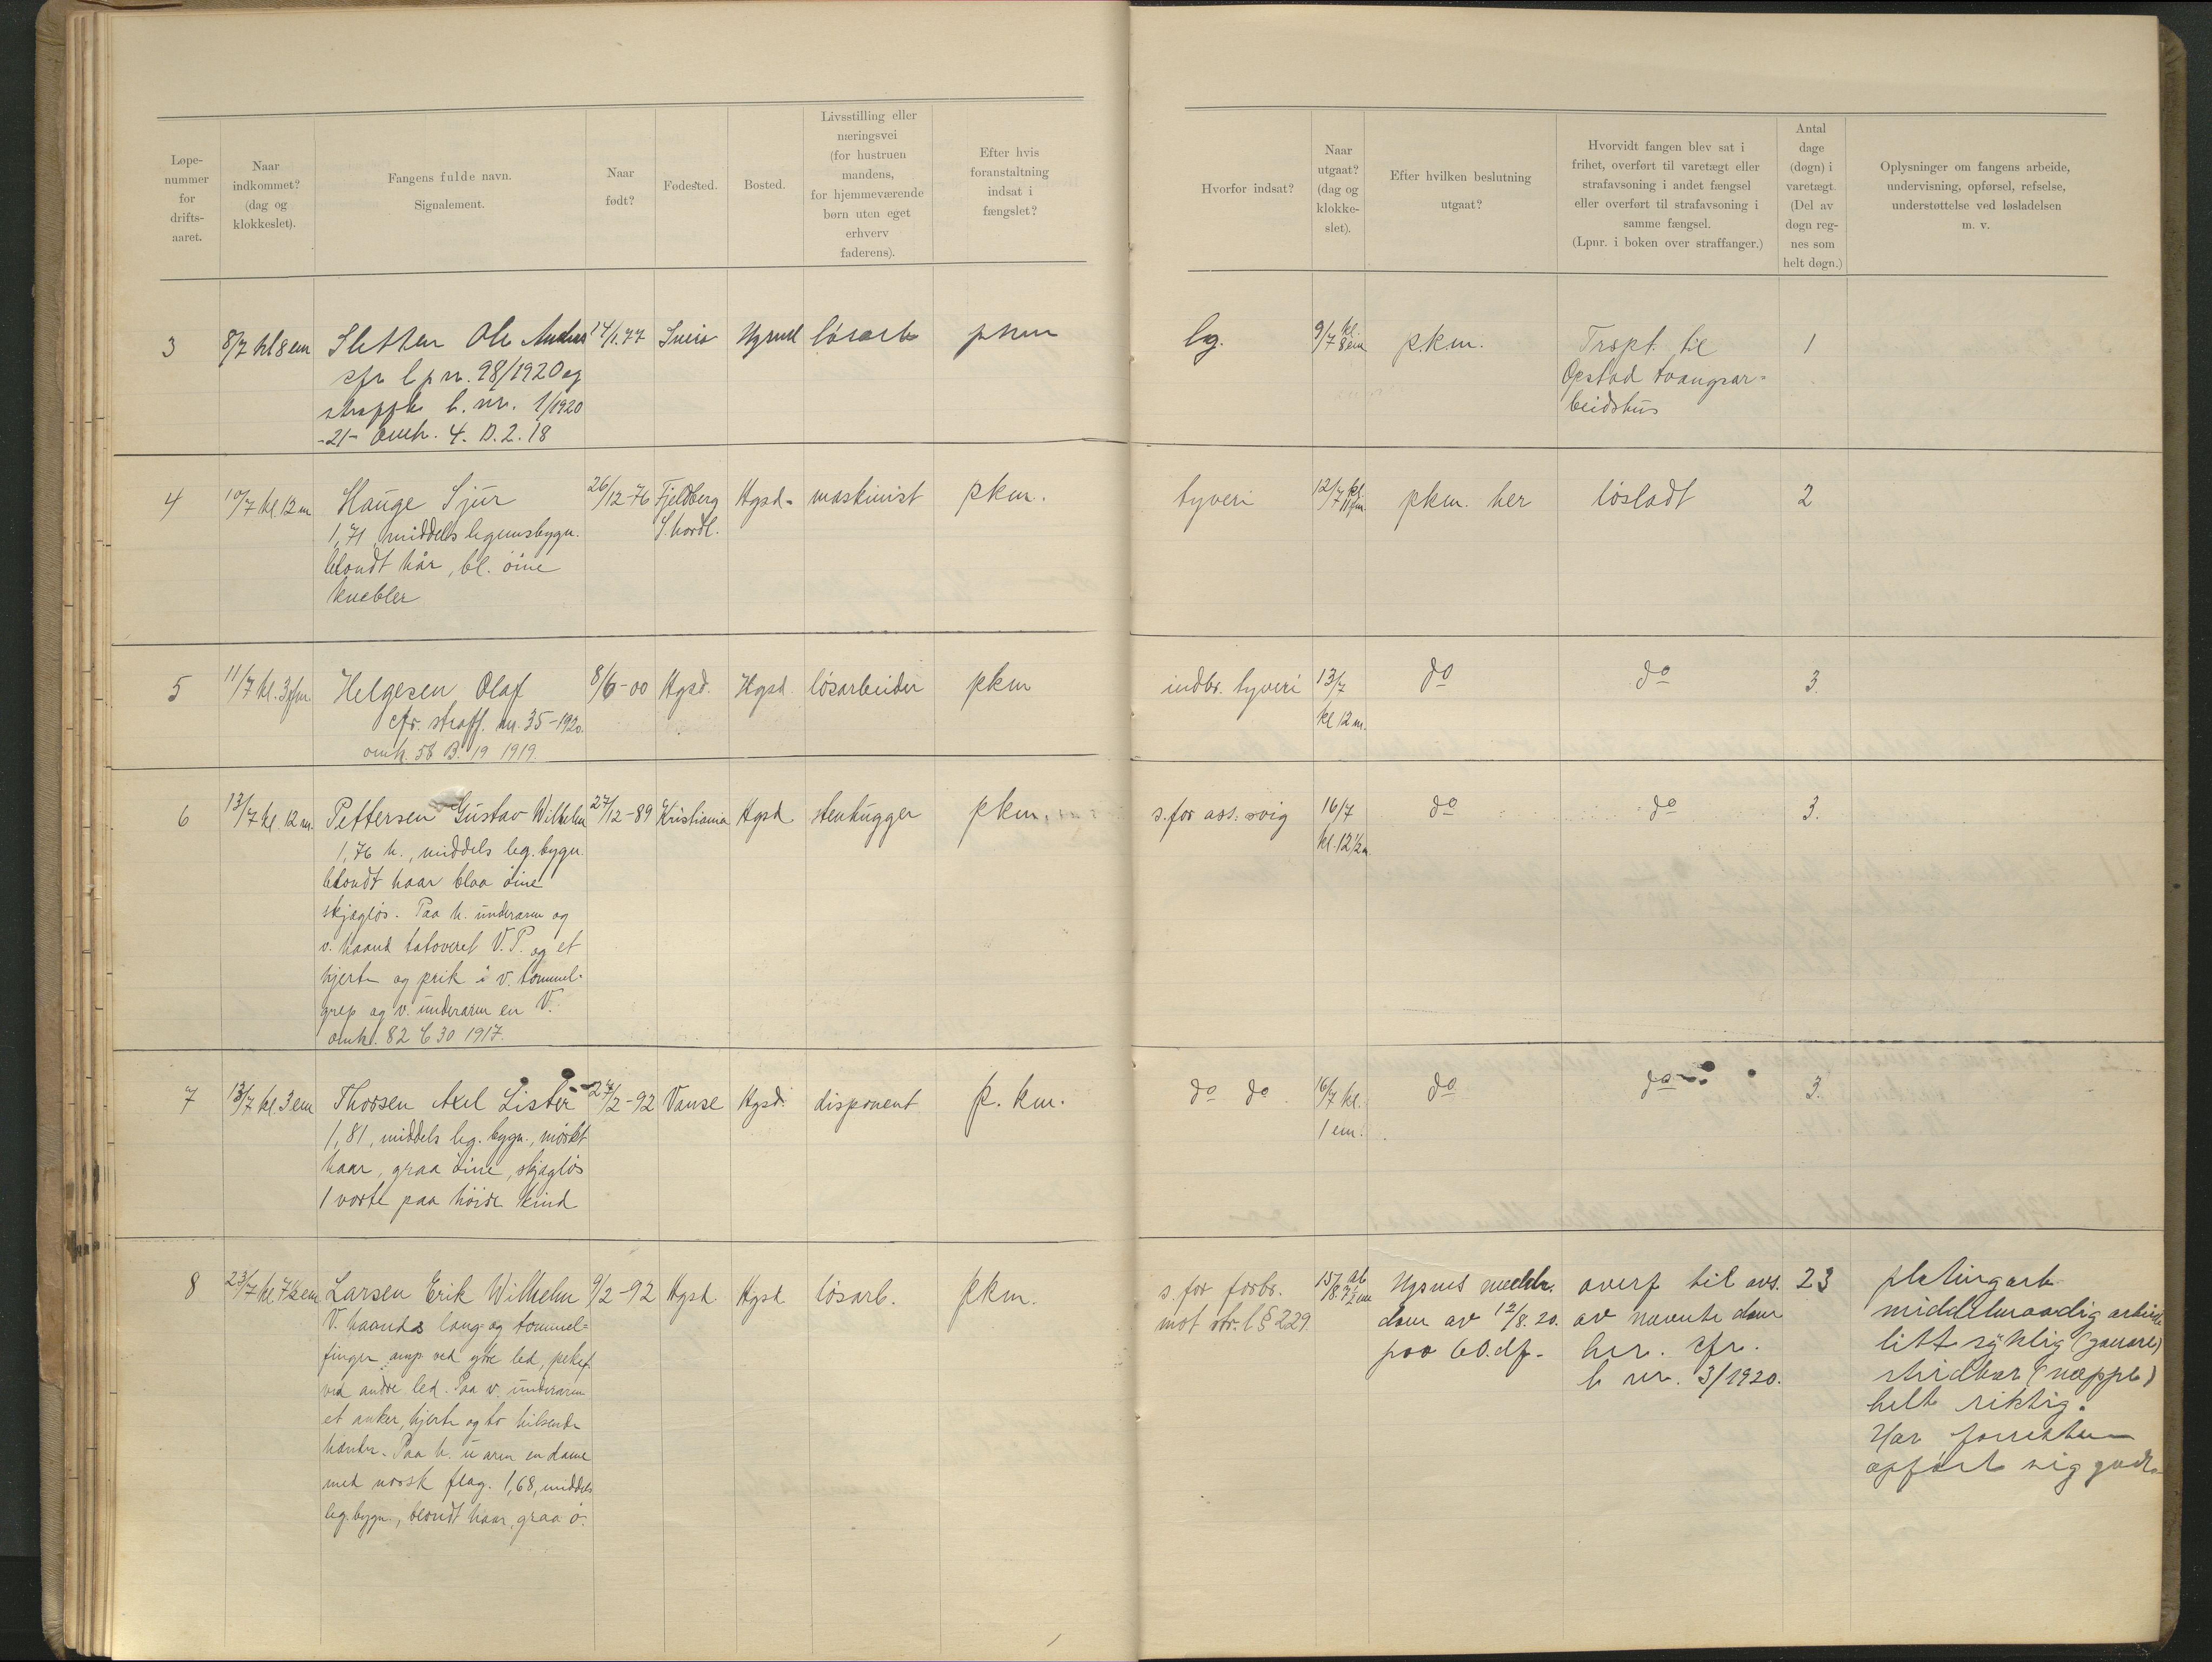 Løpe-
nummer
for
drifts-
aaret.
Naar
indkommet?
(dag og
klokkeslet).
Fangens fulde navn.
Signalement.
Naar
født?
Fødested.
Bosted.
Livsstilling eller
næringsvei
(for hustruen
mandens,
for hjemmeværende
børn uten eget
erhverv
faderens).
Efter hvis
foranstaltning
indsat i
fængslet?
Hvorfor indsat?
Naar
utgaat?
(dag og
klokke-
slet).
Efter hvilken beslutning
utgaat?
Hvorvidt fangen blev sat i
frihet, overført til varetægt eller
strafavsoning i andet fængsel
eller overført til strafavsoning i
samme fængsel.
(Lpnr. i boken over straffanger.)
Antal
dage
(døgn) i
varetægt.
(Del av
døgn reg-
nes som
helt døgn.)
Oplysninger om fangens arbeide,
undervisning, opførsel, refselse,
understøttelse ved løsladelsen
m. v.
3 8/7 kl 8 em Sletten Ole Andreas 14/1.77 Sveio Hgsund løsarb pkm lg. 9/7 kl. 8 em pkm. Trspt. til 1
cfr lpnr. 98/1920 og
Opstad tvangsar-
straffk l. nr. 1/1920
beidshus
-21- Omk. 4. D. 2. 18
4 10/7 kl. 12 m Hauge Sjur 26/12-76 Fjeldberg Hgsd- maskinist pkm. tyveri 12/7 kl 11 fm pkm. her løsladt 2
1,71 middels legemsbygn. S.hordl.
blondt hår, bl. öine
knebler
5 11/7 kl. 3 fm Helgesen Olaf 8/6-00 Hgsd. Hgsd løsarbeider pkm indbr. tyveri 13/7 do do 3.
cfr. straff. nr. 35-1920. kl 12 m.
omk. 58 B. 19 1919.
6 13/7 kl 12 m. Pettersen Gustav Wilhelm 27/12-89 Kristiania Hgsd stenhugger pkm. s. for ass. svig 16/7 do do 3.
1,76 h., middels leg. bygn. kl. 12 1/2 m
blondt haar blaa öine
skjægløs. Paa h. underarm og
v. haand tatoveret V. P. og et
hjerte og prik i v. tommel-
grep og v. underarm en V.
omk. 82 C 30 1917.
7 13/7 kl 3 em Thorsen Axel Lister 24/2-92 Vanse Hgsd. disponent p. km. do do 16/7 kl. do do 3.
1,81, middels leg. bygn., mörkt 1 em.
haar, graa öine, skjægløs
1 vorte paa høire kind
8 23/7 kl 7 1/2 em Larsen Erik Wilhelm 9/2-92 Hgsd Hgsd. løsarb. pkm. s. for forbr. 15/8 kl 7 1/2 em Hgsnds meddr. overf til avs. 23 pletingarb
V. haands lang- og tommel- mot str. l § 229. dom av 12/8. 20. av nævnte dom middelmaadig arbeide
finger amp. ved ytre led, pekef. paa 60. df. her. cfr. litt syklig
ved andre led. Paa v. underarm l. nr. 3/1920. (næppe)
et anker, hjerte og to hilsende helt riktig.
hænder. Paa h. u arm en dame Har forresten
med norsk flag. 1,68, middels opført sig godt.
leg. bygn., blondt haar, graa ö.